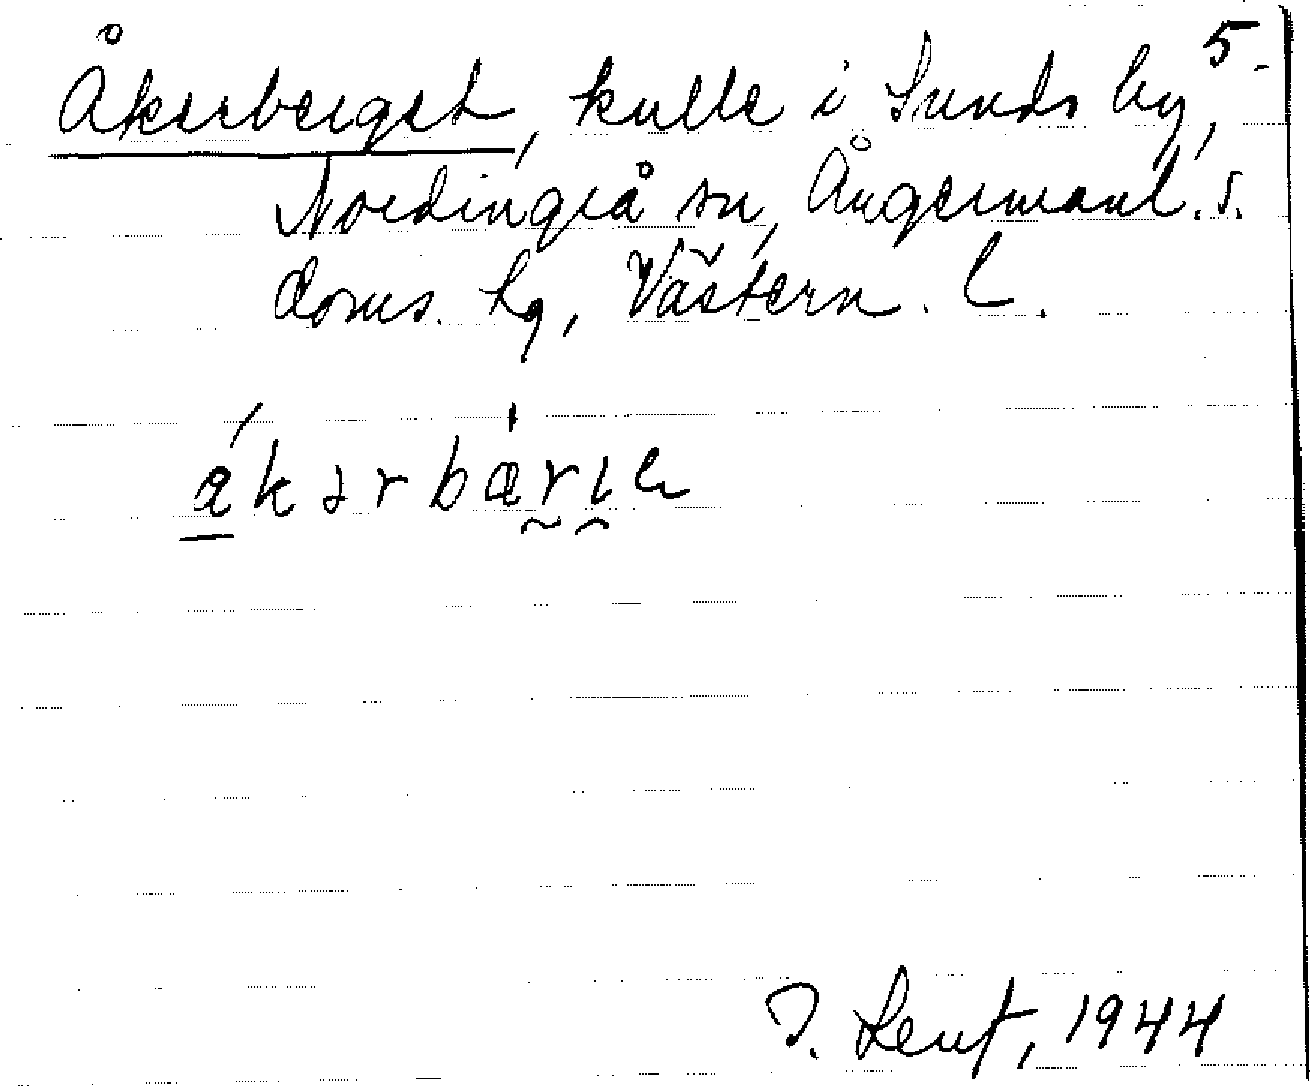 5.
Åkerberget, kulle i Sunds by,
Nordingrå sn, Ångermanl. s.
doms. hg, Västern. l.
åkərbærɩ
1944